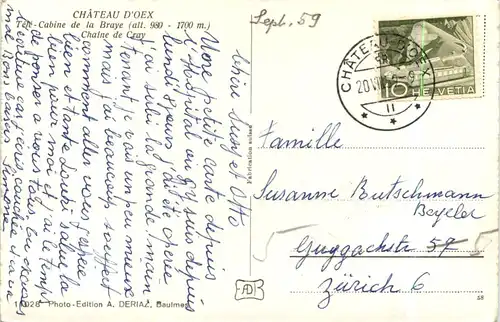 CHÂTEAU D'OEX
Télé-Cabine de la Braye (alt. 980 - 1700 m.)
Chaîne de Cray
Sept. 59
CHÂTEAU-D'OEX
20 VIII
II
10 HELVETIA
Chère Suzy et Otto
Une petite carte depuis
l'Hôpital ou je suis depuis
lundi 8 jours j'ai été opéré
j'ai subi la grande main
tenant je vait un peu mieux
mais j'ai beaucoup souffert
comment allez vous j'espère
bien et tante Louki salue la
bien pour moi et j'ai le temps
de penser a vous tous, tu excuses
l'écriture car je suis couchée sur
mon Bons baisers Simone
Fabrication suisse
Famille
Susanne Butschmann
Beyeler
Guggachstr. 57 5
Zürich 6
5
11028 Photo-Edition A. DERIAZ, Baulmes
AD
58